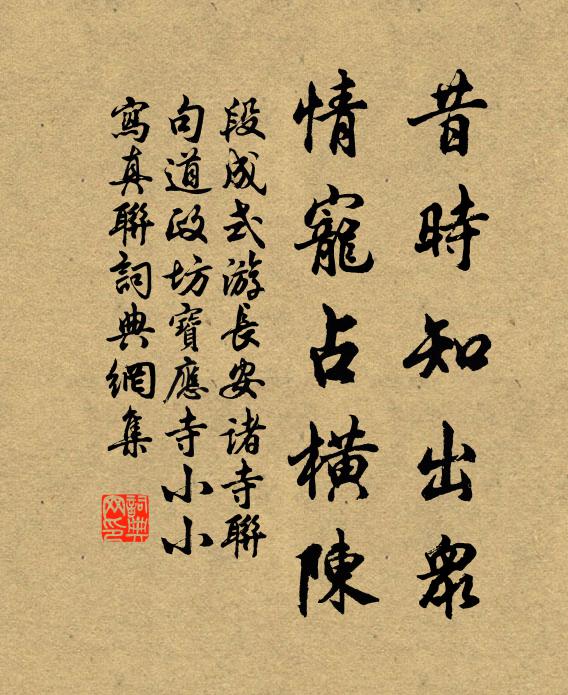 昔時知出眾
情寵占橫陳
段成式游長安诸寺聯
句道政坊寶應寺小小
寫真聯詞典網集
詞典网印